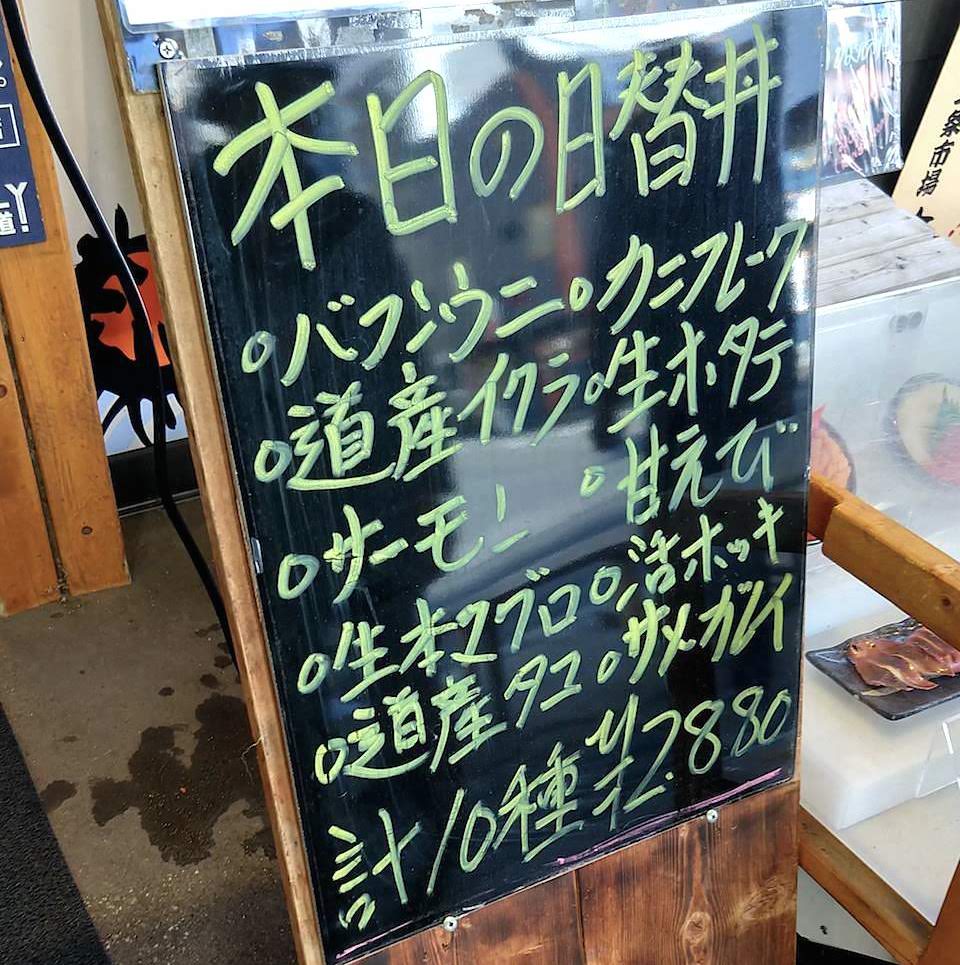 本日の日替丼
○バフンウニ ○カニフレーク
○道産イクラ ○生ホタテ
○サーモン ○甘えび
○生本マグロ ○活ホッキ
○道産タコ ○サメガレイ
計10種 ¥2.880
市場